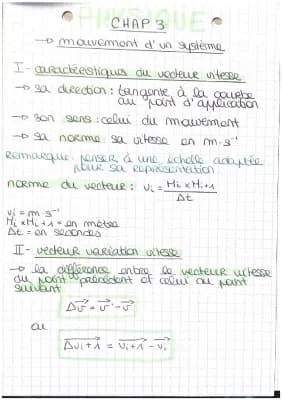 PHYSIQUE
CHAP 3
→ mouvement d'un système
I - caractéristiques du vecteur vitesse
→ sa direction : tangente à la courbe
au point d'application
→ son sens : celui du mouvement
→ sa norme : sa vitesse en m·s⁻¹
Remarque : penser à une échelle adaptée
pour sa représentation
norme du vecteur : vᵢ = Mᵢ × Mᵢ+1 / Δt
vᵢ = m·s⁻¹
Mᵢ × Mᵢ+1 = en mètre
Δt = en secondes
II - vecteur variation vitesse
→ la différence entre le vecteur vitesse
du point précédent et celui du point
suivant
Δv⃗ = v⃗' - v⃗
ou
Δvᵢ+1⃗ = vᵢ+1⃗ - vᵢ⃗